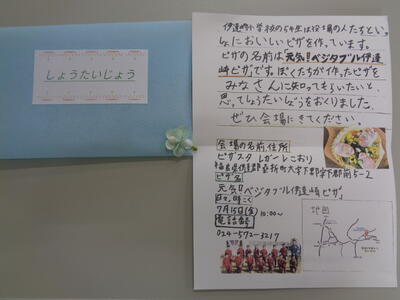 しょうたいじょう
伊達崎小学校の5年生は役場の人たちといっ
しょにおいしいピザを作っています。
ピザの名前は「元気!!ベジタブル伊達
崎ピザ」です。ぼくたちが作ったピザを
みなさんに知ってもらいたいと
思ってしょうたいじょうをおくりました。
ぜひ会場にきてください。
会場の名前、住所
ピザスタ レガーレこおり
福島県伊達郡桑折町大字下郡字下郡前5-2
ピザ名
元気!!ベジタブル伊達崎ピザ
日にち、時こく
7月15日(金) 10:00~
電話番号
024-572-3217
地図